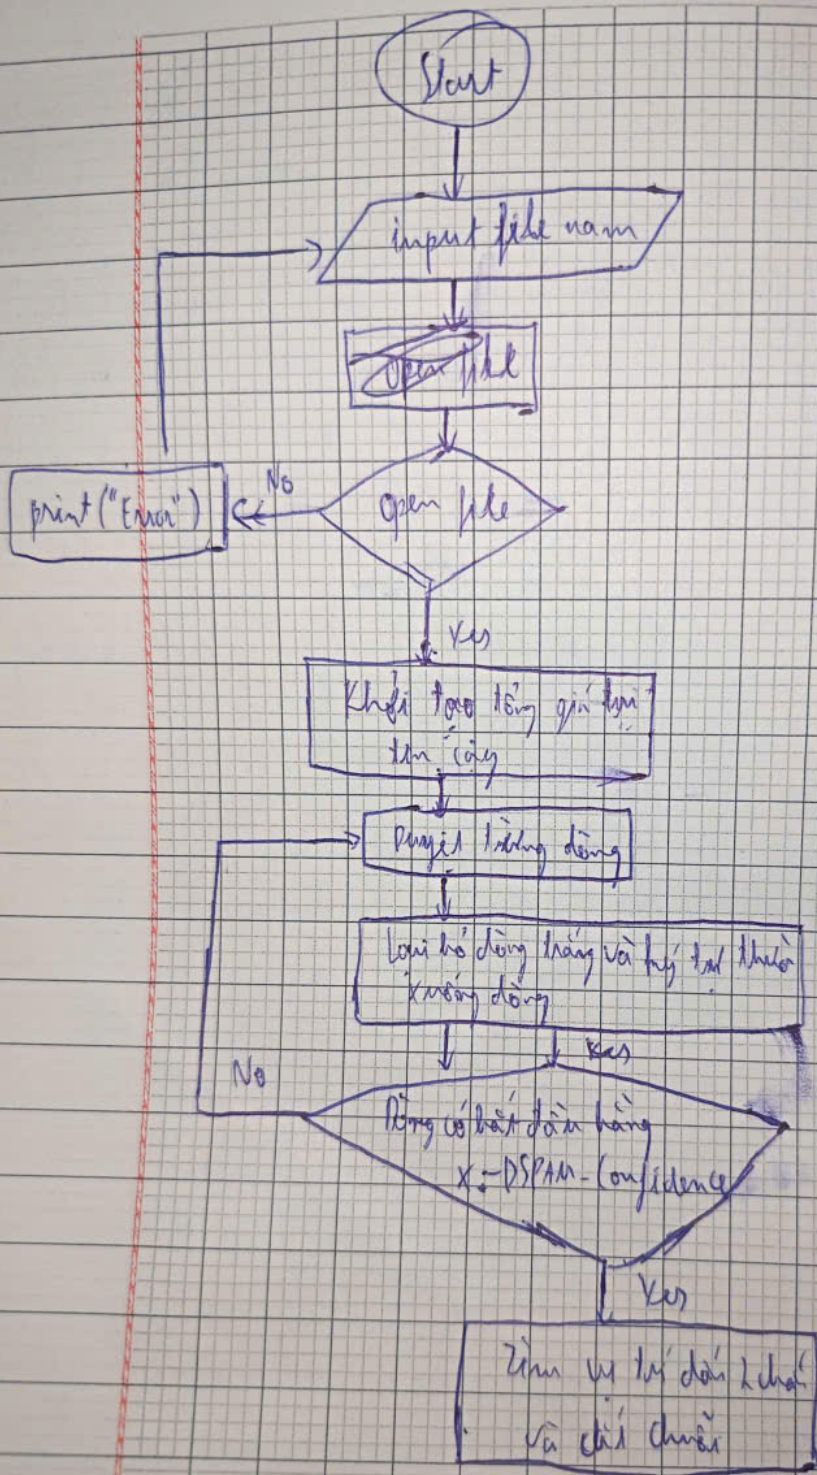 Start
input file nam
open file
open file
No
print("Error")
Yes
Khởi tạo tổng giá trị
tin cậy
Duyệt từng dòng
Loại bỏ dòng trắng và ký tự thừa
xuống dòng
Yes
No
Dòng có bắt đầu bằng
X:-DSPAM-Confidence
Yes
Tìm vị trí dấu 2 chấ
và cắt chuỗi